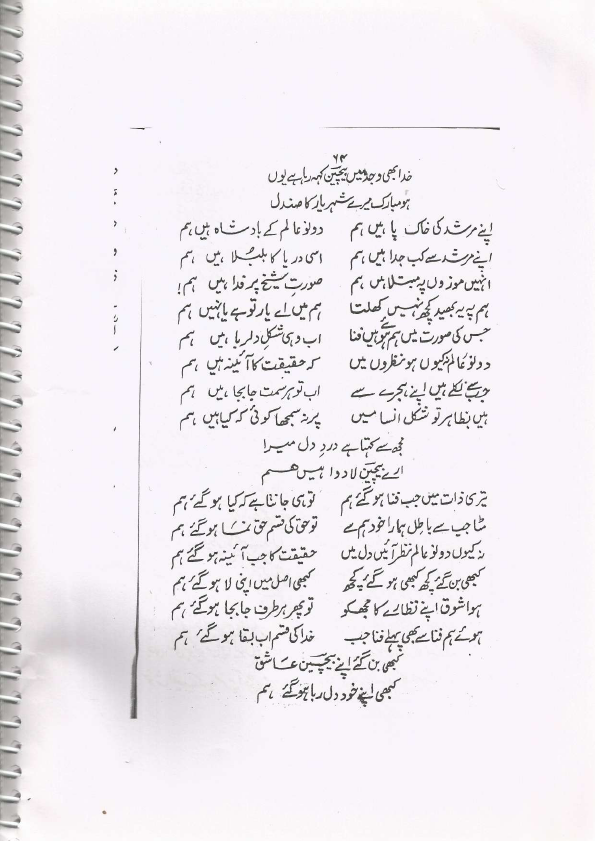 ۶۴
خدا بھی وجد میں بیچین کہہ رہا ہے یوں
ہو مبارک میرے شہریار کا صندل
اپنے مرشد کی خاک پا ہیں ہم دونو عالم کے بادشاہ ہیں ہم
اپنے مرشد سے کب جدا ہیں ہم اسی دریا کا بلبلا ہیں ہم
انہیں موزوں پر مبتلا ہیں ہم صورتِ شیخ پر فدا ہیں ہم!
ہم پہ یہ بھید کچھ نہیں کھلتا ہم میں اے یار تو ہے یا نہیں ہم
جس کی صورت میں ہم ہوئے ہیں فنا اب وہی شکلِ دلربا ہیں ہم
دونو عالم نہ کیوں ہو نظروں میں کہ حقیقت کا آئینہ ہیں ہم
جب سے نکلے ہیں اپنے ہجرے سے اب تو ہر سمت جابجا ہیں ہم
ہیں بظاہر تو شکل انسا میں پر نہ سمجھا کوئی کہ کیا ہیں ہم
مجھ سے کہتا ہے دردِ دل میرا
ارے بیچین لادوا ہیں ہم
تیری ذات میں جب فنا ہو گئے ہم تو ہی جانتا ہے کہ کیا ہو گئے ہم
مٹا جب سے باطل ہمارا خود ہم سے تو حق کی قسم حق نما ہو گئے ہم
نہ کیوں دونو عالم نظر آئیں دل میں حقیقت کا جب آئینہ ہو گئے ہم
کبھی بن گئے کچھ کبھی ہو گئے کچھ کبھی اصل میں اپنی لا ہو گئے ہم
ہوا شوق اپنے نظارے کا مجھکو تو پھر ہر طرف جابجا ہو گئے ہم
ہوئے ہم فنا سے بھی پہلے فنا جب خدا کی قسم اب بقا ہو گئے ہم
کبھی بن گئے اپنے بیچین عاشق
کبھی اپنے خود دل ربا ہو گئے ہم